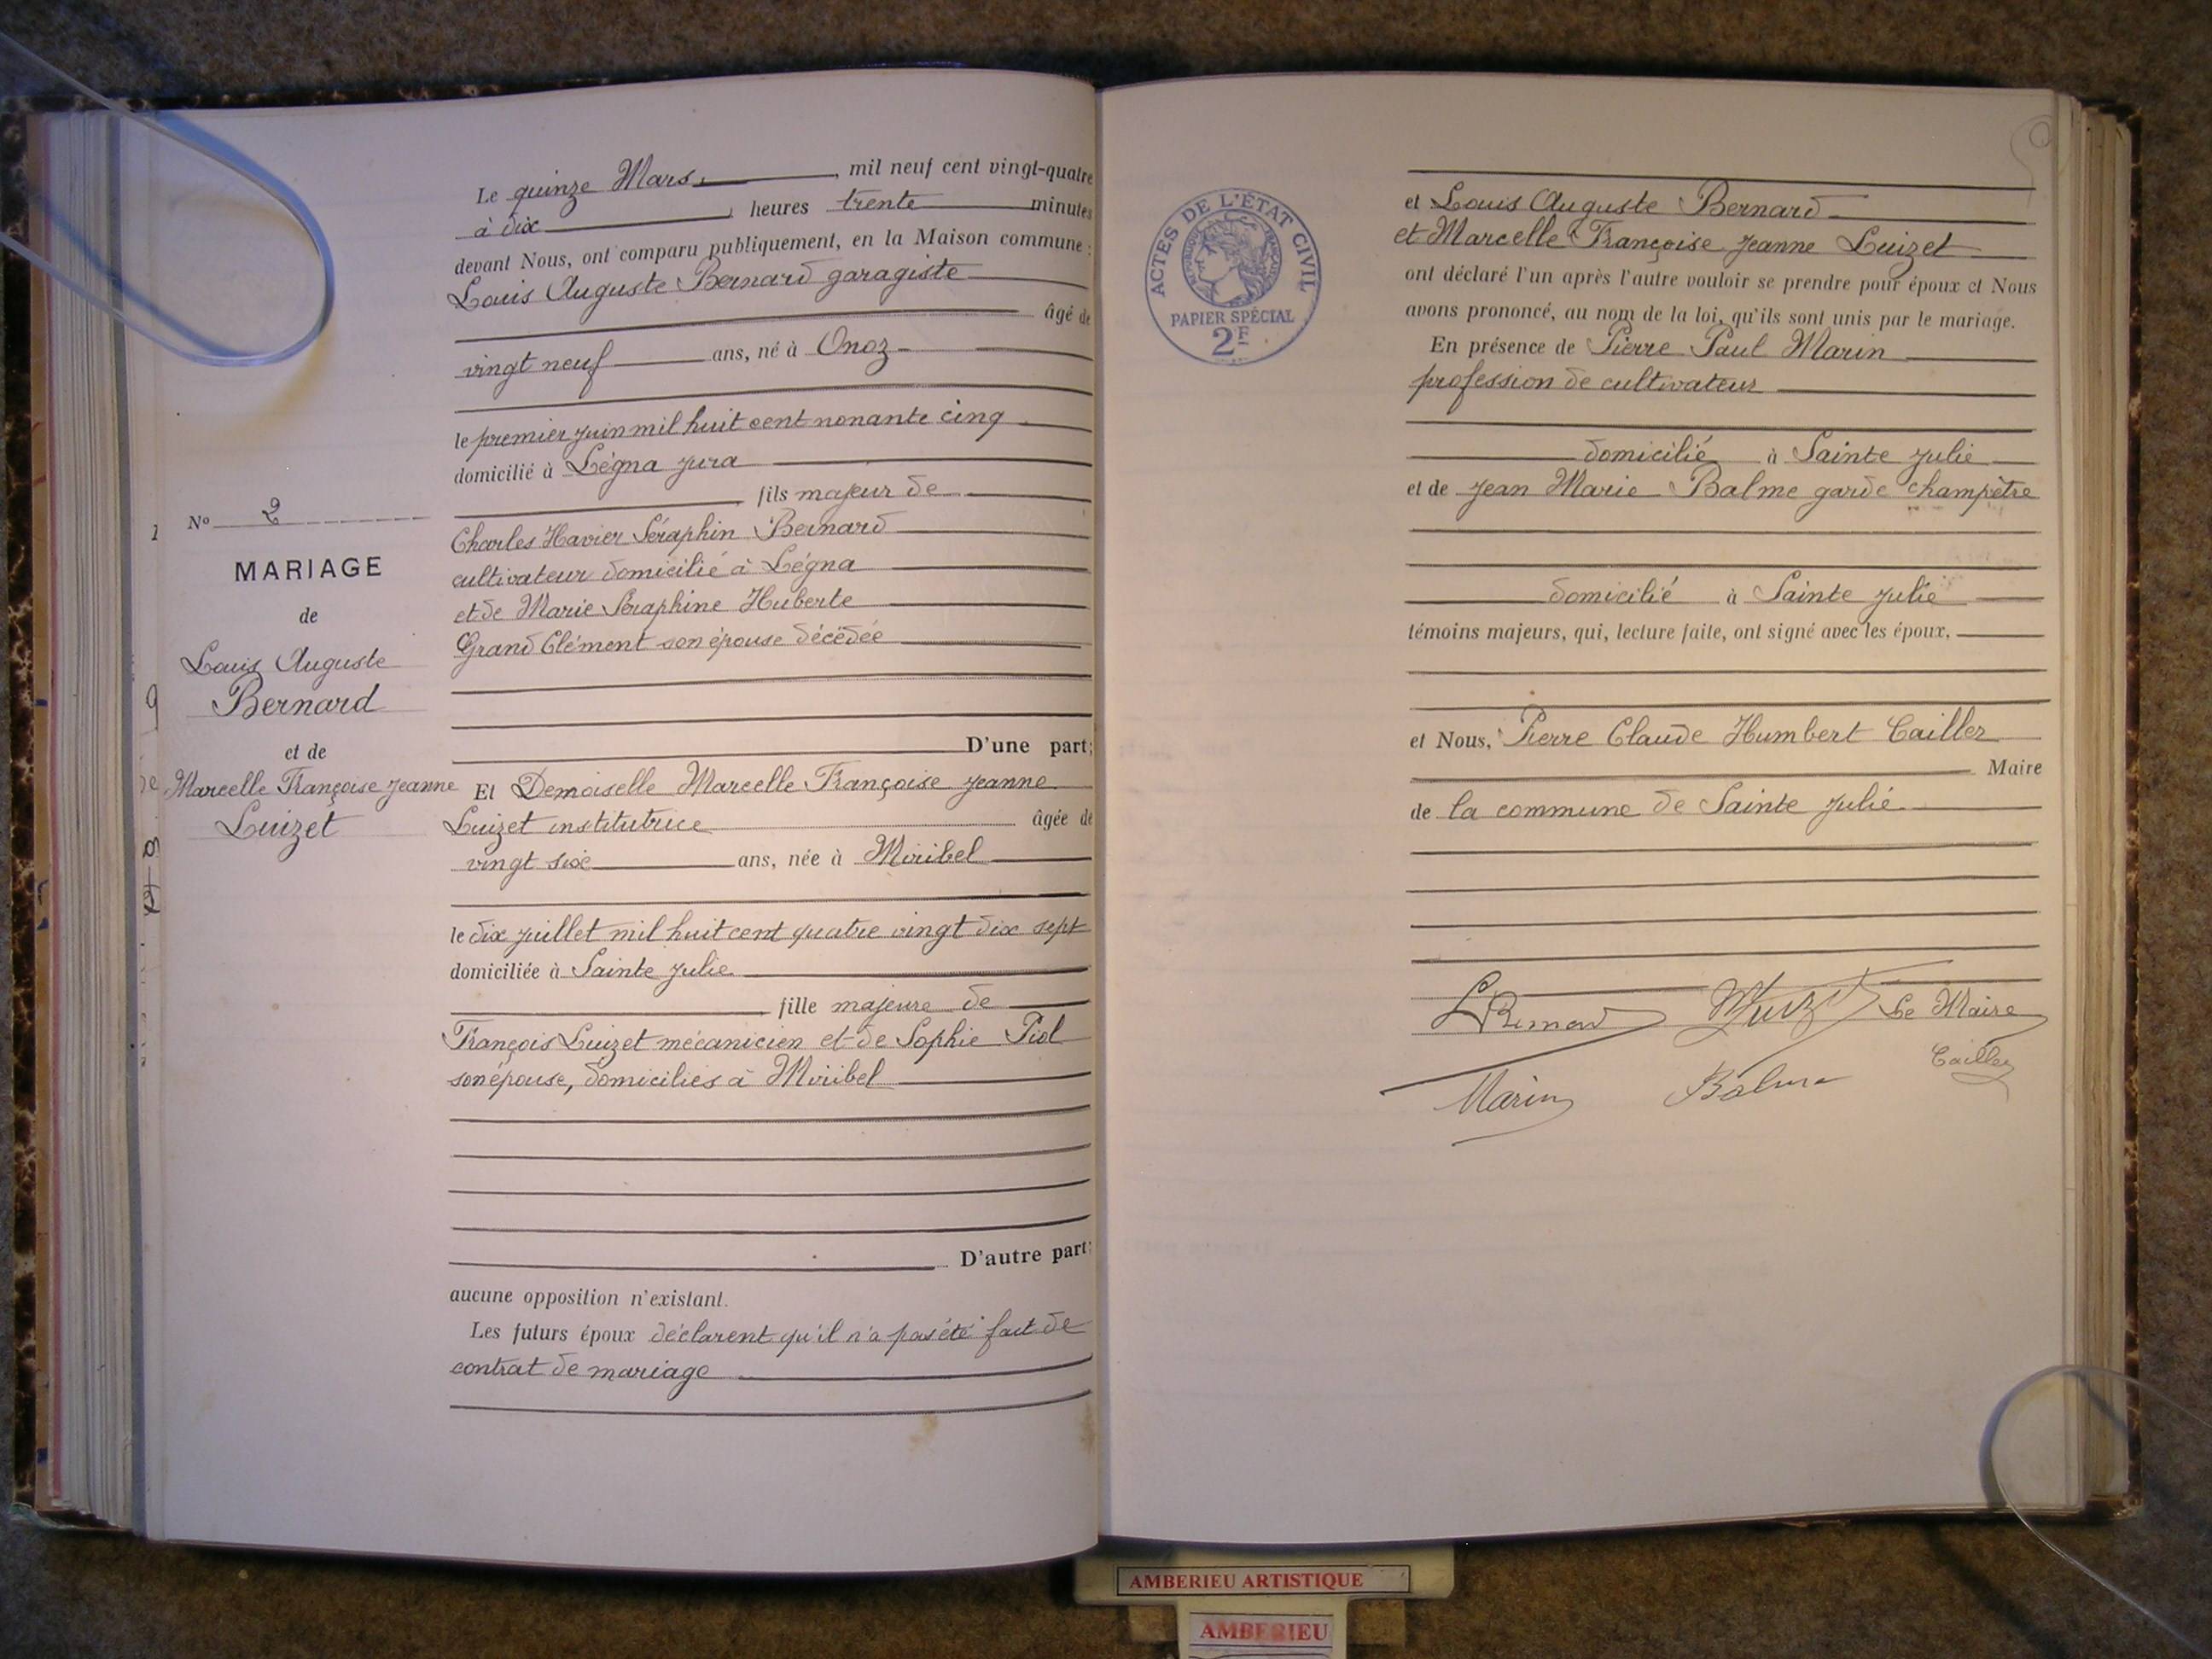 Le quinze Mars, mil neuf cent vingt-quatre
à dix heures trente minutes
devant Nous, ont comparu publiquement, en la Maison commune :
Louis Auguste Bernard garagiste
âgé de
vingt neuf ans, né à Onoz
le premier juin mil huit cent nonante cinq
domicilié à Légna Jura
fils majeur de
Charles Havier Séraphin Bernard
cultivateur domicilié à Légna
et de Marie Séraphine Huberte
Grand Clément son épouse décédée
D'une part;
Nº 2
MARIAGE
de
Louis Auguste
Bernard
et de
Marcelle Françoise Jeanne
Luizet
Et Demoiselle Marcelle Françoise Jeanne
Luizet institutrice âgée de
vingt six ans, née à Miribel
le dix juillet mil huit cent quatre vingt dix sept
domiciliée à Sainte Julie
fille majeure de
François Luizet mécanicien et de Sophie Piol
son épouse, domiciliés à Miribel
D'autre part;
aucune opposition n'existant.
Les futurs époux déclarent qu'il n'a pas été fait de
contrat de mariage
ACTES DE L'ÉTAT CIVIL
RÉPUBLIQUE FRANÇAISE
PAPIER SPÉCIAL
2F
et Louis Auguste Bernard
et Marcelle Françoise Jeanne Luizet
ont déclaré l'un après l'autre vouloir se prendre pour époux et Nous
avons prononcé, au nom de la loi, qu'ils sont unis par le mariage.
En présence de Pierre Paul Marin
profession de cultivateur
domicilié à Sainte Julie
et de Jean Marie Balme garde champêtre
domicilié à Sainte Julie
témoins majeurs, qui, lecture faite, ont signé avec les époux,
et Nous, Pierre Claude Humbert Caillez
Maire
de la commune de Sainte Julie
LBernard MLuizet Le Maire
Marin Balme Caillez
AMBERIEU ARTISTIQUE
AMBERIEU